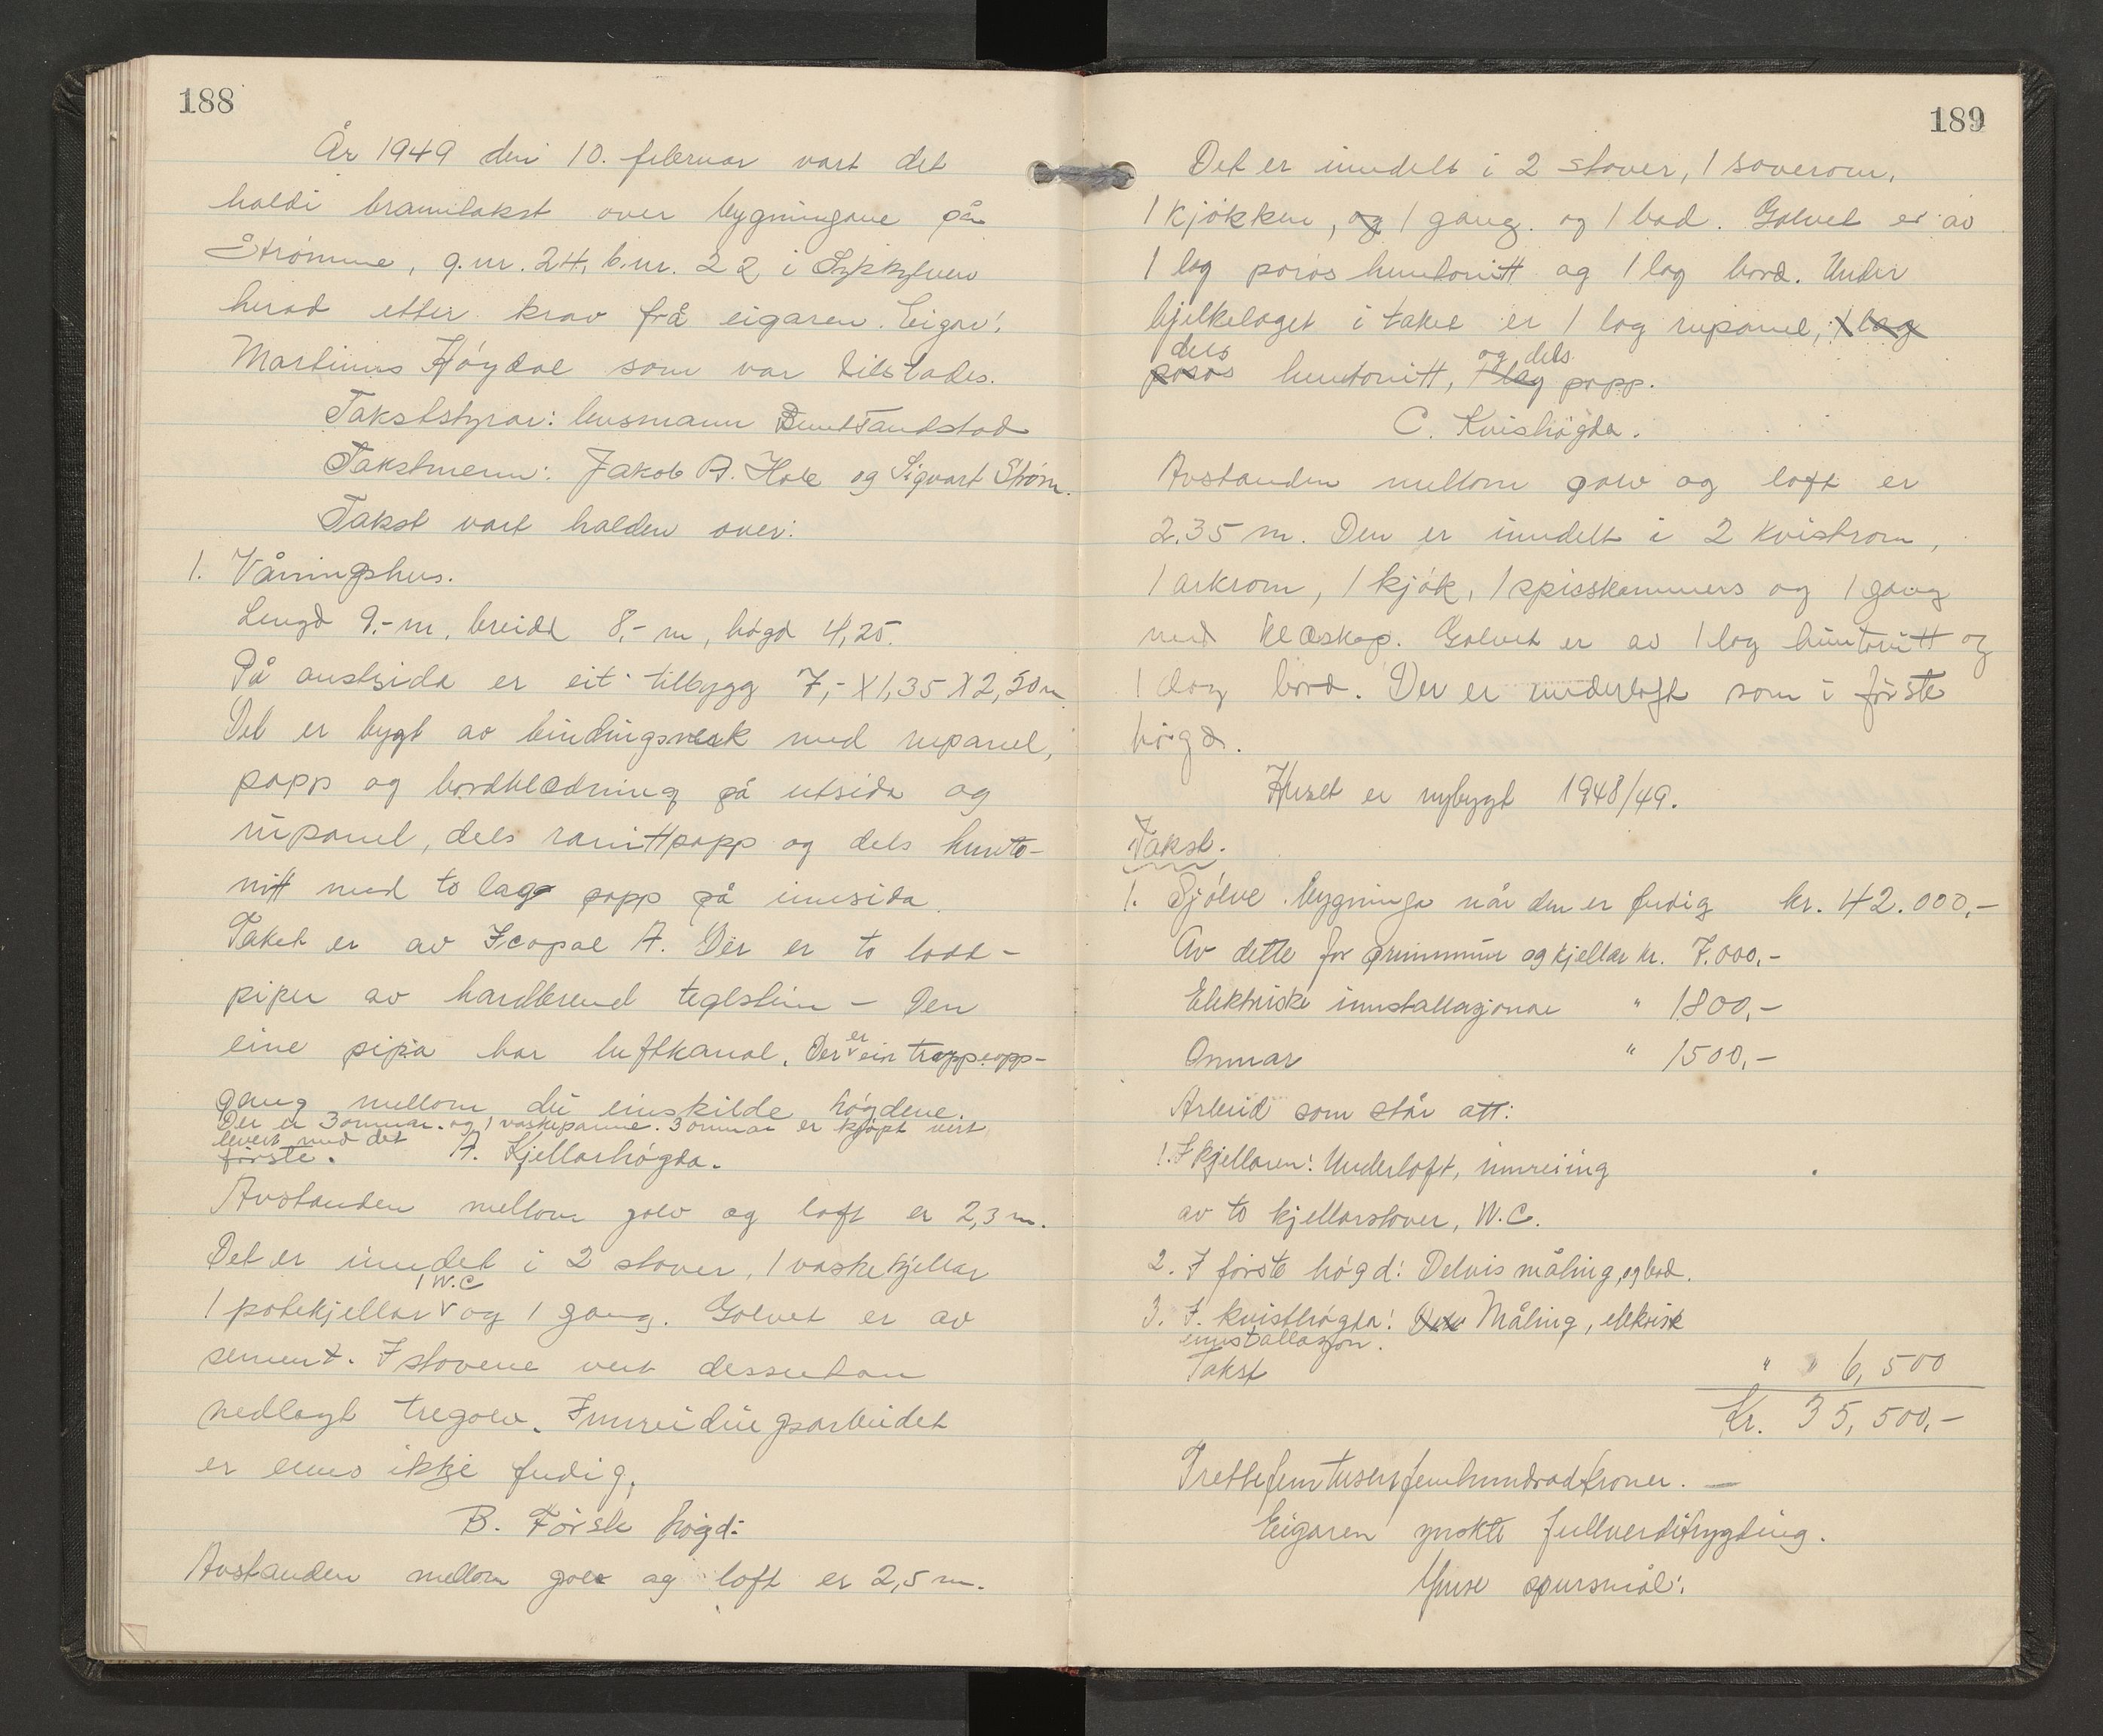 188
År 1949 den 10. februar vart det
haldi branntakst over bygningane på
Strømme, g.nr. 24, b.nr. 22 i Sykkylven
herad etter krav frå eigaren. Eigar:
Martinus Høydal som var tilstades.
Takststyrar: lensmann Bernt Tandstad
Takstmenn: Jakob A. Hole og Sigvart Strøm.
Takst vart halden over:
1. Våningshus.
Lengd 9,- m, breidd 8,- m, høgd 4,25.
På austsida er eit tilbygg 7,- X 1,35 X 2,50 m
Det er bygt av bindingsverk med rupanel,
papp og bordklædning på utsida og
rupanel, dels ranittpapp og dels hunto-
nitt med to lag papp på innsida.
Taket er av Icopal A. Der er to lodd-
piper av hardbrend teglstein - Den
eine pipa har luftkanal. Der er ein trappeopp-
gang mellom dei einskilde høgdene.
Der er 3 omnar. og 1 vaskepanne. 3 omnar er kjøpt vert
levert med det
første.
A. Kjellarhøgda.
Avstanden mellom golv og loft er 2,3 m.
Det er inndelt i 2 stover, 1 vaskekjellar
1 W.C
1 potekjellar og 1 gang. Golvet er av
sement. I stovene vert dessutan
nedlagt tregolv. Innreidingsarbeidet
er enno ikkje ferdig.
B. Første høgd:
Avstanden mellom golv og loft er 2,5 m.
189
Det er inndelt i 2 stover, 1 soverom,
1 kjøkken, og 1 gang. og 1 bad. Golvet er av
1 lag porøs huntonitt og 1 lag bord. Under
bjelkelaget i taket er 1 lag rupanel, 1 lag
dels og dels
porøs huntonitt, 1 lag papp.
C. Kvisthøgda.
Avstanden mellom golv og loft er
2,35 m. Den er inndelt i 2 kvistrom,
1 arkrom, 1 kjøk, 1 spisskammers og 1 gang
med klæskap. Golvet er av 1 lag huntonitt og
1 lag bord. Der er underloft som i første
høgd.
Huset er nybygt 1948/49.
Takst.
1. Sjølve bygninga når den er ferdig kr. 42.000,-
Av dette for grunnmur og kjellar kr. 7.000,-
Elektriske innstallasjonar " 1800,-
Omnar " 1500,-
Arbeid som står att:
1. I kjellaren: Underloft, innreiing
av to kjellarstover, W.C.
2. I første høgd: Delvis måling, og bad.
3. I kvisthøgda: Måling, elektrisk
innstallasjon.
Takst " " 6,500
Kr. 35,500,-
Trettifemtusenfemhundradkroner. -
Eigaren ynskte fullverditrygding.
Ymse spursmål: